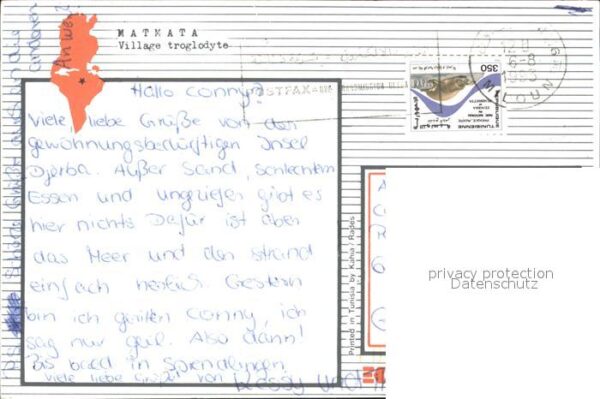 MATMATA
Village troglodyte
Hallo Conny!
Viele liebe Grüße von der
gewöhnungsbedürftigen Insel
Djerba. Außer Sand, schlechtem
Essen und ungeziefer gibt es
hier nichts. Dafür ist aber
das Meer und der Strand
einfach herrlich. Gestern
bin ich geritten Conny, ich
sag nur geil. Also dann!
Bis bald in Sprendlingen
Viele liebe Grüße von Kessy und
PS: Schöne Grüße an
anderen
350
REPUBLIQUE
TUNISIENNE
6-8
Printed in Tunisia by Kahia / Rades
privacy protection
Datenschutz